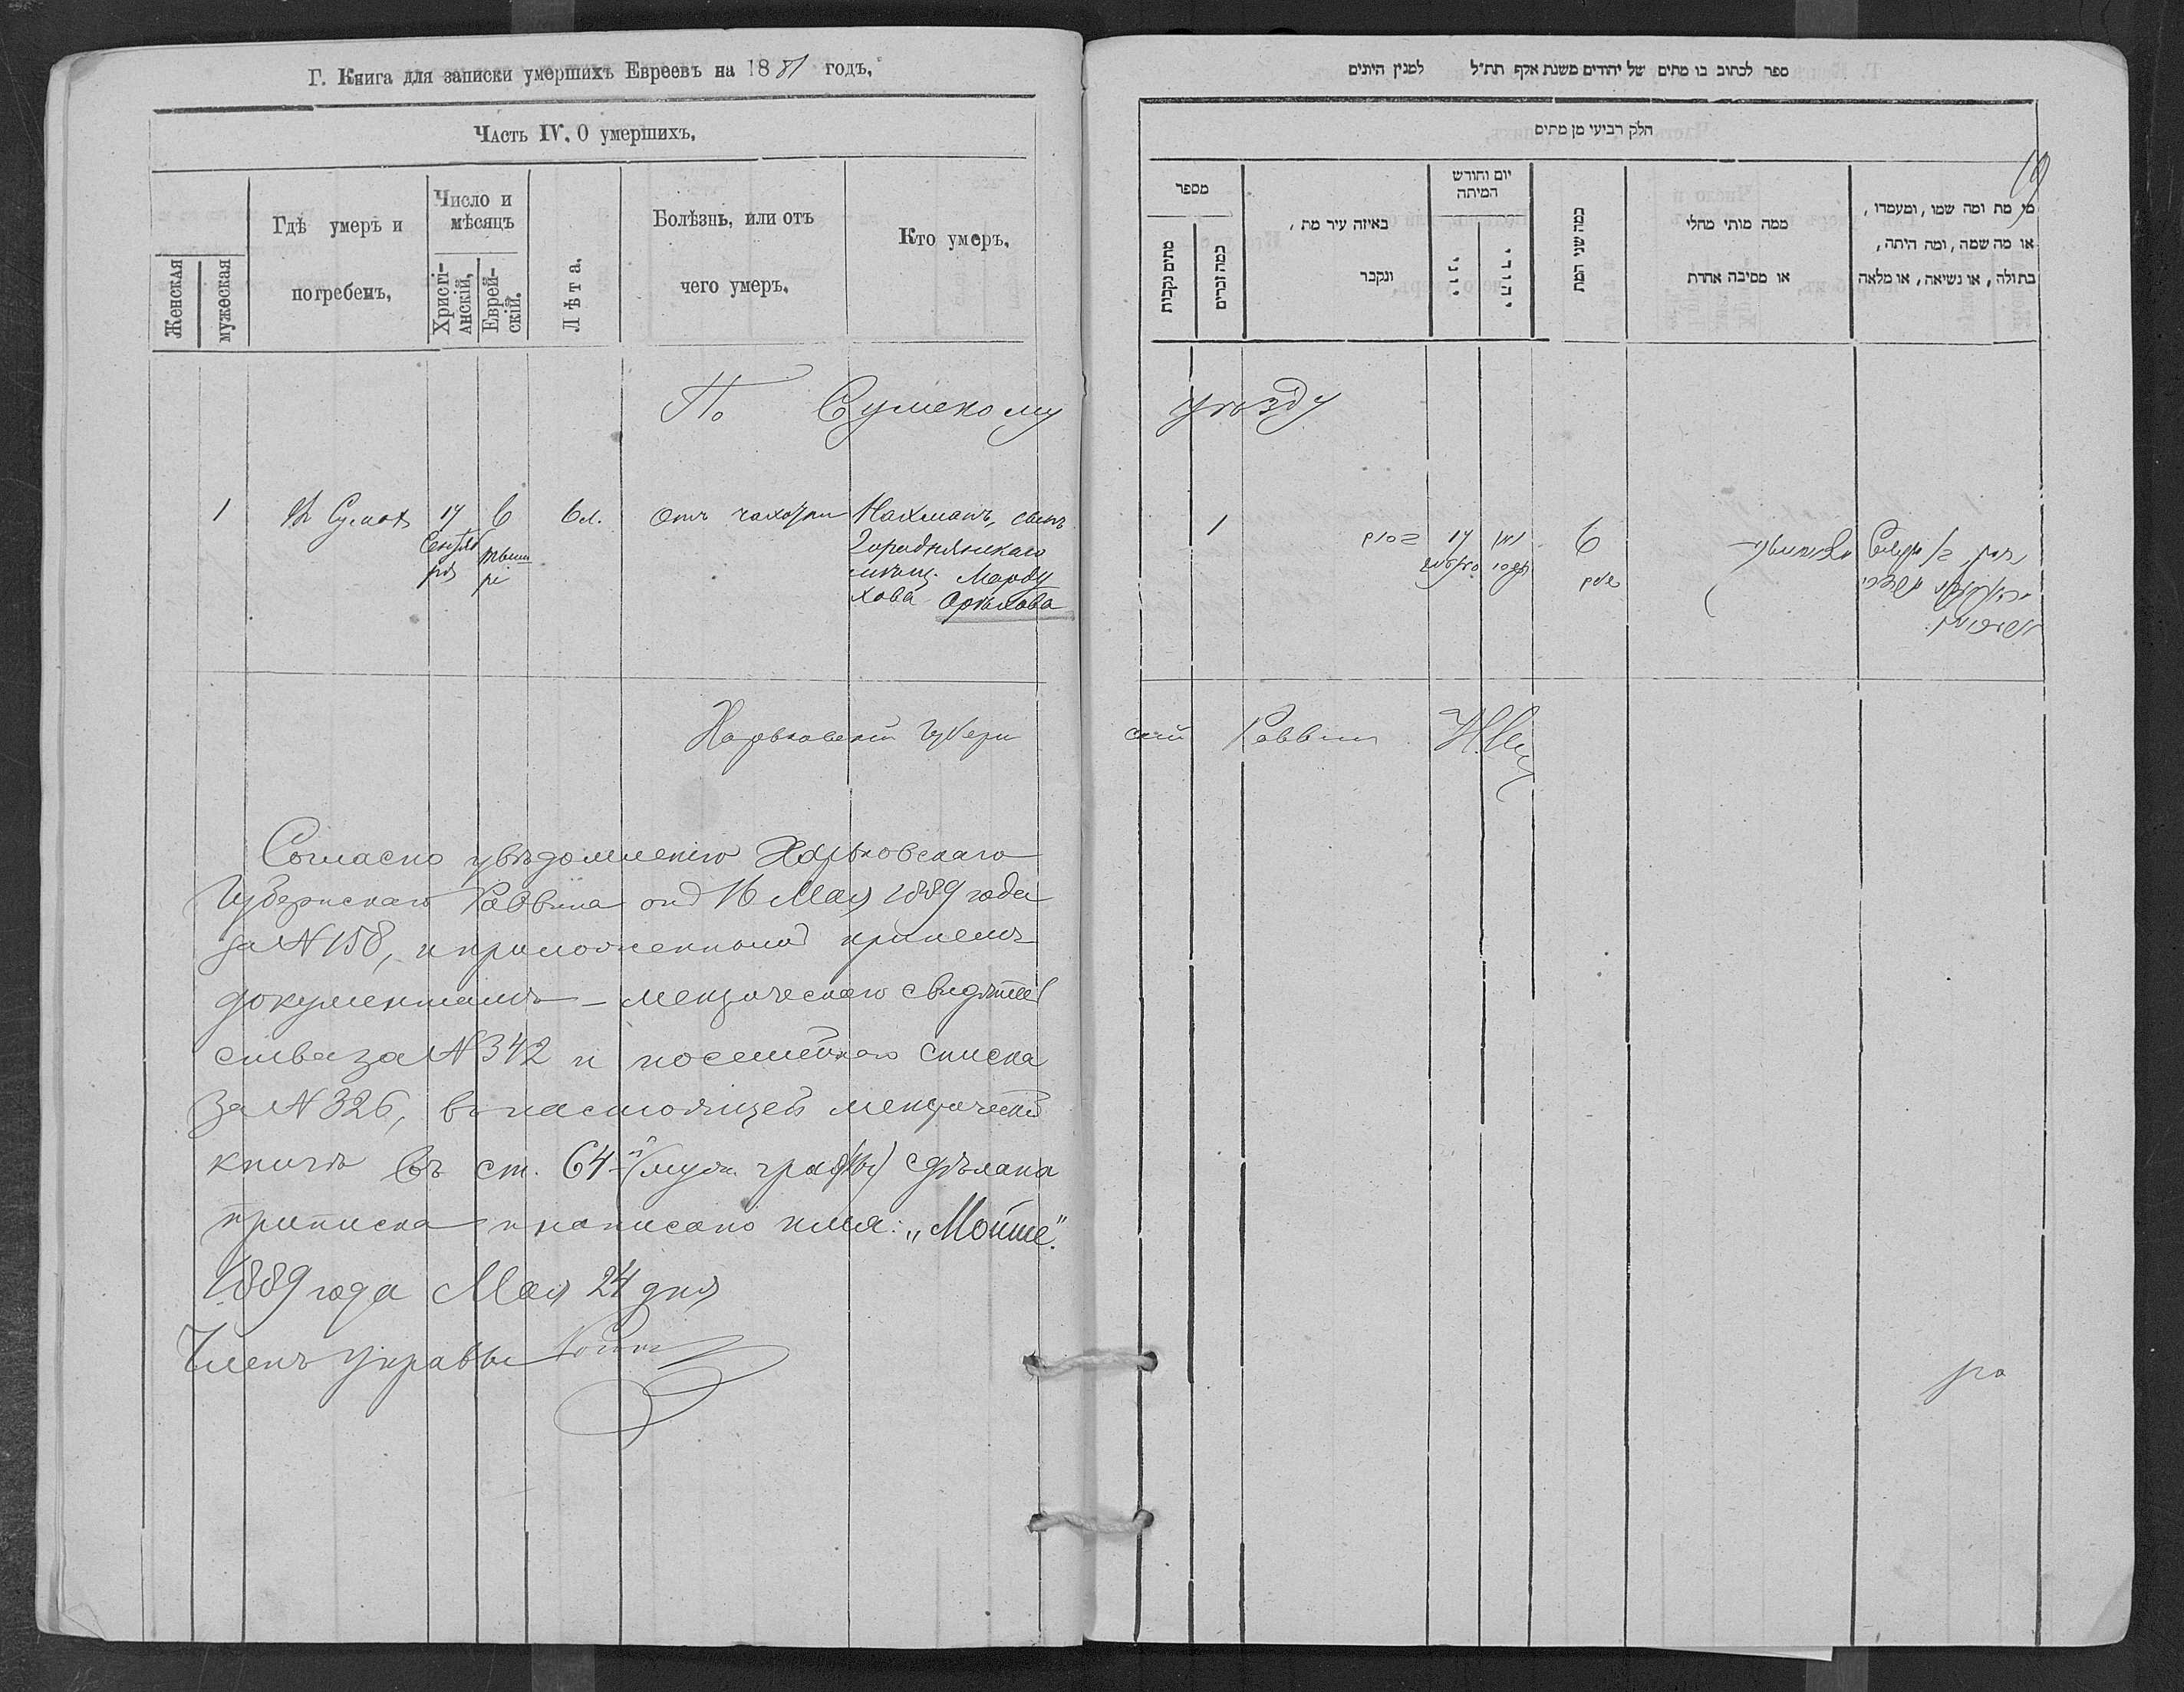 Г. Книга для записки умершихъ Евреевъ на 1881 годъ.
Часть IV. О умершихъ.
Женская
мужеская
Гдѣ умеръ и
погребенъ.
Число и
мѣсяцъ
Христі-
анскій.
Еврей-
скій.
Лѣта.
Болѣзнь, или отъ
чего умеръ.
Кто умеръ.
По Сумскому
1 Въ Сумахъ 17 6 6 л. Отъ чахотки Нахманъ, сынъ
Сентяб
ря
тыш
ри
Городнянскаго
мѣщ. Морду
хова Орѣхова
Харьковскій Губерн
Согласно увѣдомленію Харьковскаго
Губернскаго Раввина отъ 16 Мая 1889 года
за № 158, и приложеннымъ при немъ
документамъ – метрическаго свидѣтель
ства за № 342 и посемейнаго списка
за № 326, въ настоящей метрической
книгѣ въ ст. 64й (муж. графы) сдѣлана
приписка и написано имя: „Мойше".
1889 года Мая 24 дня
Членъ Управы
ספר לכתוב בו מתים של יהודים משנת אלף תת״ל למנין היונים
חלק רביעי מן מתים
19
מספר
מתים נקבות
כמה זכרים
באיזה עיר מת,
ונקבר
יום וחודש
המיתה
יוני
יהודי
כמה שני המת
ממה מותי מחלי
או מסיבה אחרת
מי מת ומה שמו, ומעמדו,
או מה שמה, ומה היתה,
בתולה, או נשיאה, או מלאה
уѣзду
1
17
6
скій Раввинъ